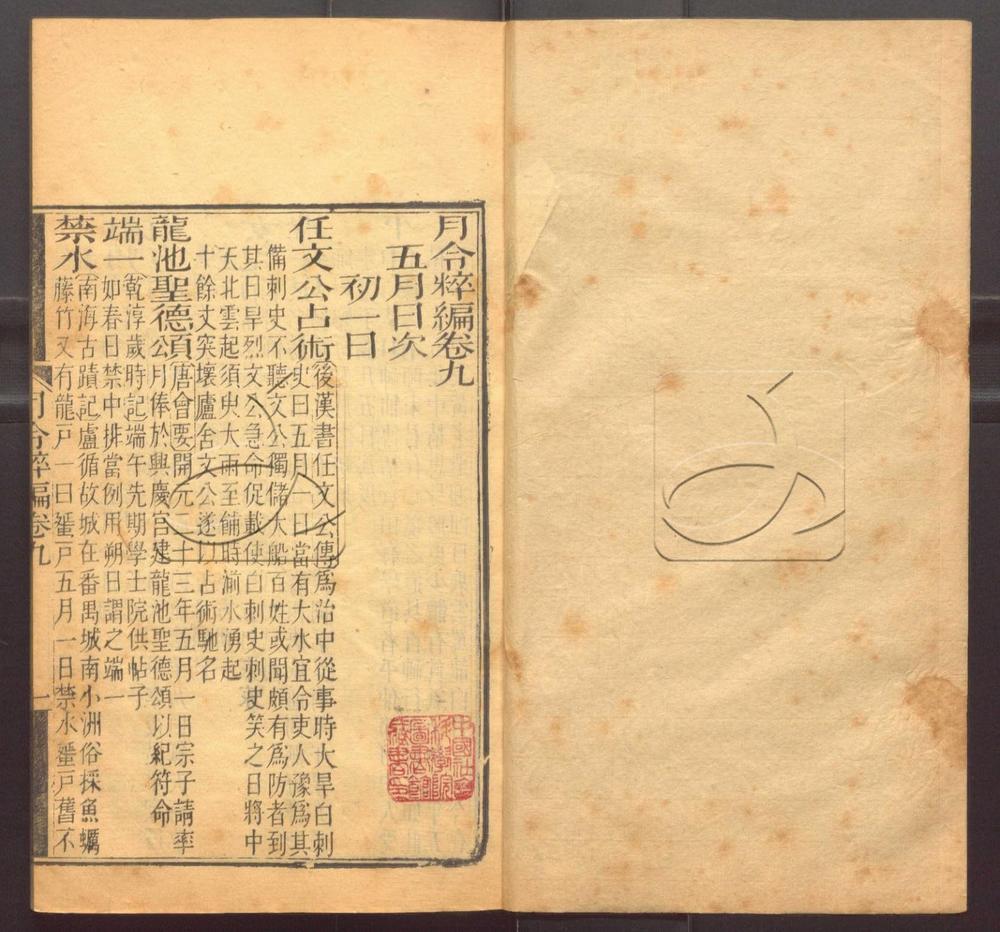 月令粹編卷九
五月日次
初一日
任文公占術後漢書任文公傳爲治中從事時大旱白刺
史曰五月一日當有大水宜令吏人豫爲其
備刺史不聽文公獨儲大船百姓或聞頗有爲防者到
其日旱烈文公急命促載使白刺史刺史笑之日將中
天北雲起須臾大雨至餔時湔水湧起
十餘丈突壞廬舍文公遂以占術馳名
龍池聖德頌唐會要開元二十三年五月一日宗子請率
月俸於興慶宮建龍池聖德頌以紀符命
端一乾淳歲時記端午先期學士院供帖子
如春日禁中排當例用朔日謂之端一
禁水南海古蹟記盧循故城在番禺城南小洲俗採魚蠣
藤竹又有龍戸一曰蜑戸五月一日禁水蜑戸舊不
月令粹編卷九
一
中國社會
科學院
圖書館
藏書印